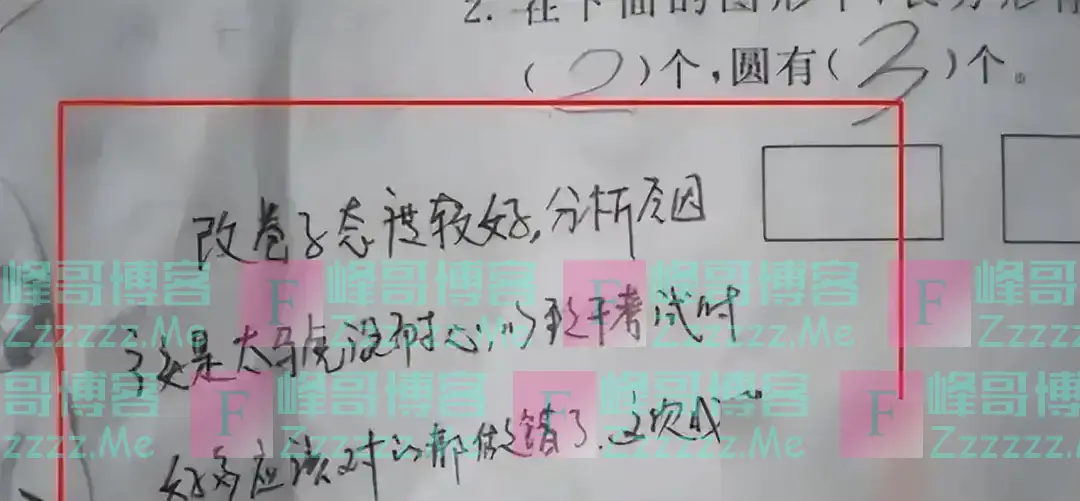 2. 在下面的图形中，长方形有
( 2 )个，圆有( 3 )个。
改卷子态度较好，分析原因
是太马虎没耐心，以致于考试时
好多应该对的都做错了。这次成
峰哥博客 F 峰哥博客 F 峰哥博客 F 峰哥博客
Zzzzzz.Me Zzzzzz.Me Zzzzzz.Me Zzzzzz.
峰哥博客 F 峰哥博客 F 峰哥博客 F 峰哥
Zzzzz.Me Zzzzzz.Me Zzzzzz.Me Zzzzzz